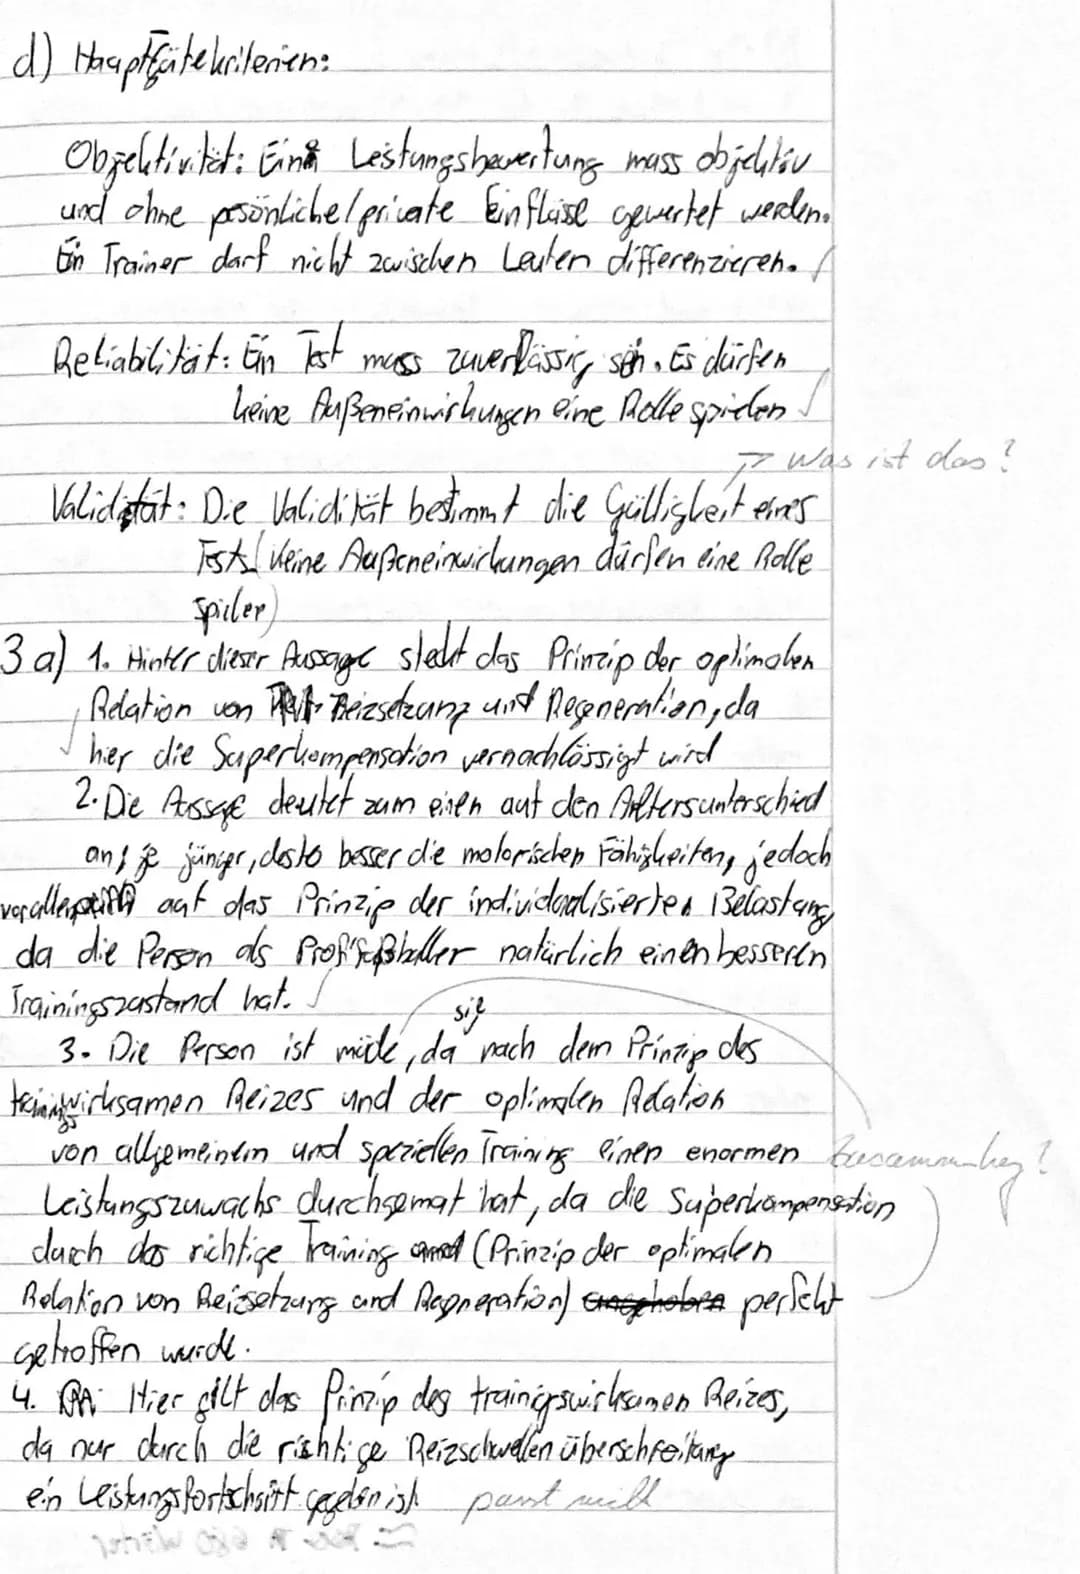 d) Hauptgütekriterien:
Objektivität: Eine Leistungsbewertung muss objektiv
und ohne pesönliche/private Einflüsse gewertet werden.
Ein Trainer darf nicht zwischen Leuten differenzieren.
Reliabilität: Ein Test muss zuverlässig sein. Es dürfen
keine Außeneinwirkungen eine Rolle spielen
Was ist das?
Validität: Die Validität bestimmt die Gültigkeit eines
Tests (keine Außeneinwirkungen dürfen eine Rolle
spielen)
3 a) 1. Hinter dieser Aussage steckt das Prinzip der optimalen
Relation von Reizsetzung und Regeneration, da
hier die Superkompensation vernachlässigt wird
2. Die Aussage deutet zum einen auf den Altersunterschied
an, je jünger, desto besser die motorischen Fähigkeiten, jedoch
vor allem auf das Prinzip der individualisierten Belastung,
da die Person als Profifußballer natürlich einen besseren
Trainingszustand hat.
sie
3. Die Person ist müde, da nach dem Prinzip des
trainingswirksamen Reizes und der optimalen Relation
von allgemeinem und speziellen Training einen enormen
Zusammenhang?
Leistungszuwachs durchgemat hat, da die Superkompensation
durch das richtige Training (Prinzip der optimalen
Relation von Reizsetzung und Regneration) angehoben perfekt
getroffen wurde.
4. Hier gilt das Prinzip des trainigswirksamen Reizes,
da nur durch die richtige Reizschwellenüberschreitung
ein Leistungsfortschritt gegeben ist. passt nicht